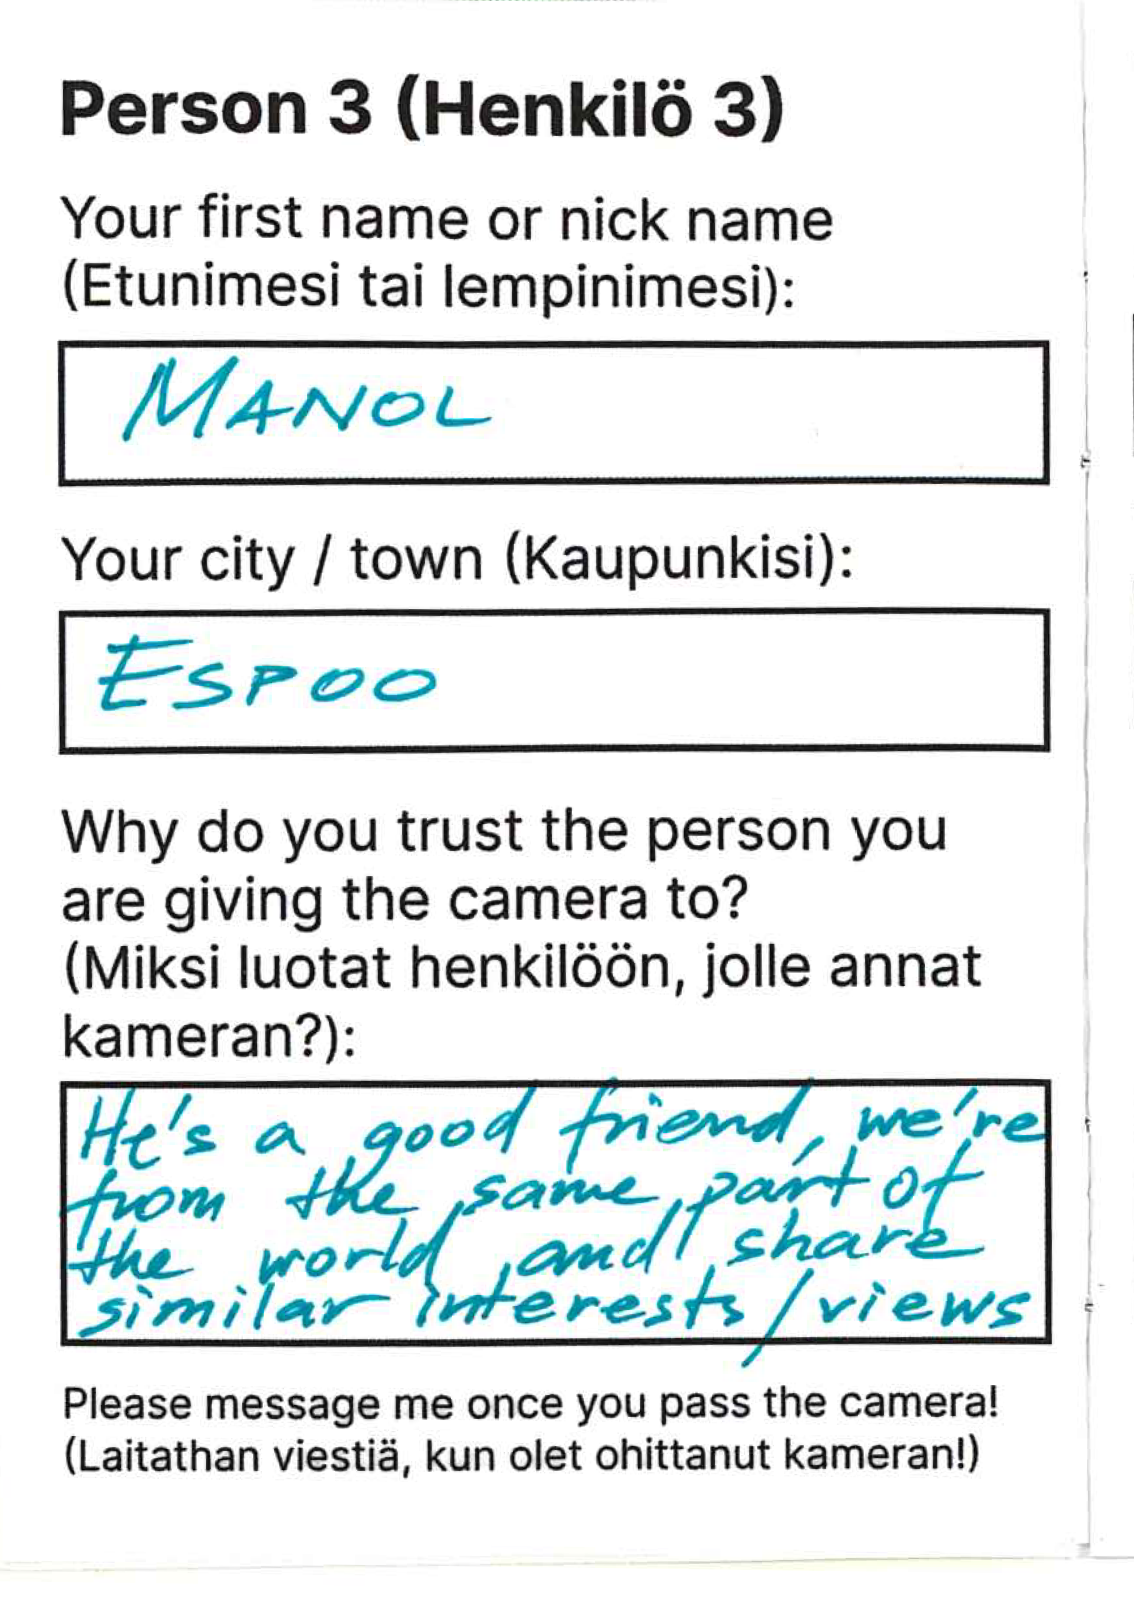 Person 3 (Henkilö 3)
Your first name or nick name
(Etunimesi tai lempinimesi):
MANOL
Your city / town (Kaupunkisi):
ESPOO
Why do you trust the person you
are giving the camera to?
(Miksi luotat henkilöön, jolle annat
kameran?):
He's a good friend, we're
from the same part of
the world and share
similar interests/views
Please message me once you pass the camera!
(Laitathan viestiä, kun olet ohittanut kameran!)